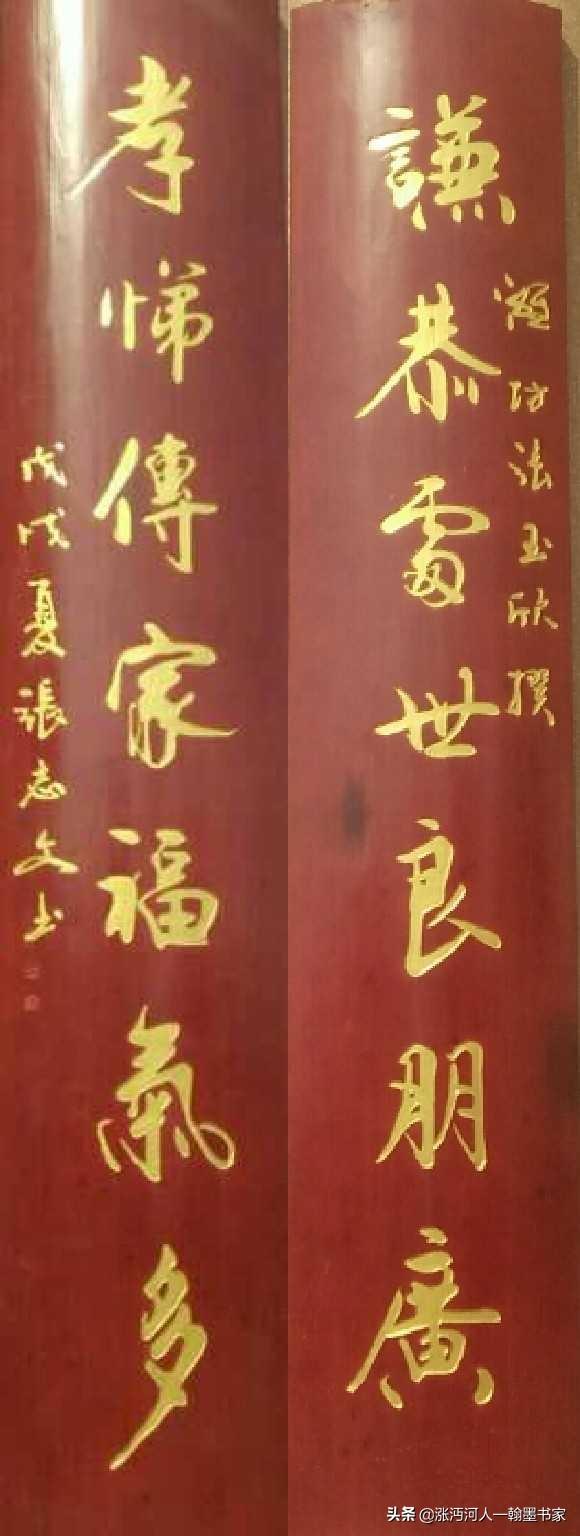 謙恭處世良朋廣
坊張玉欣撰
孝悌傳家福氣多
戊戌夏張志文书
头条 @涨沔河人一翰墨书家